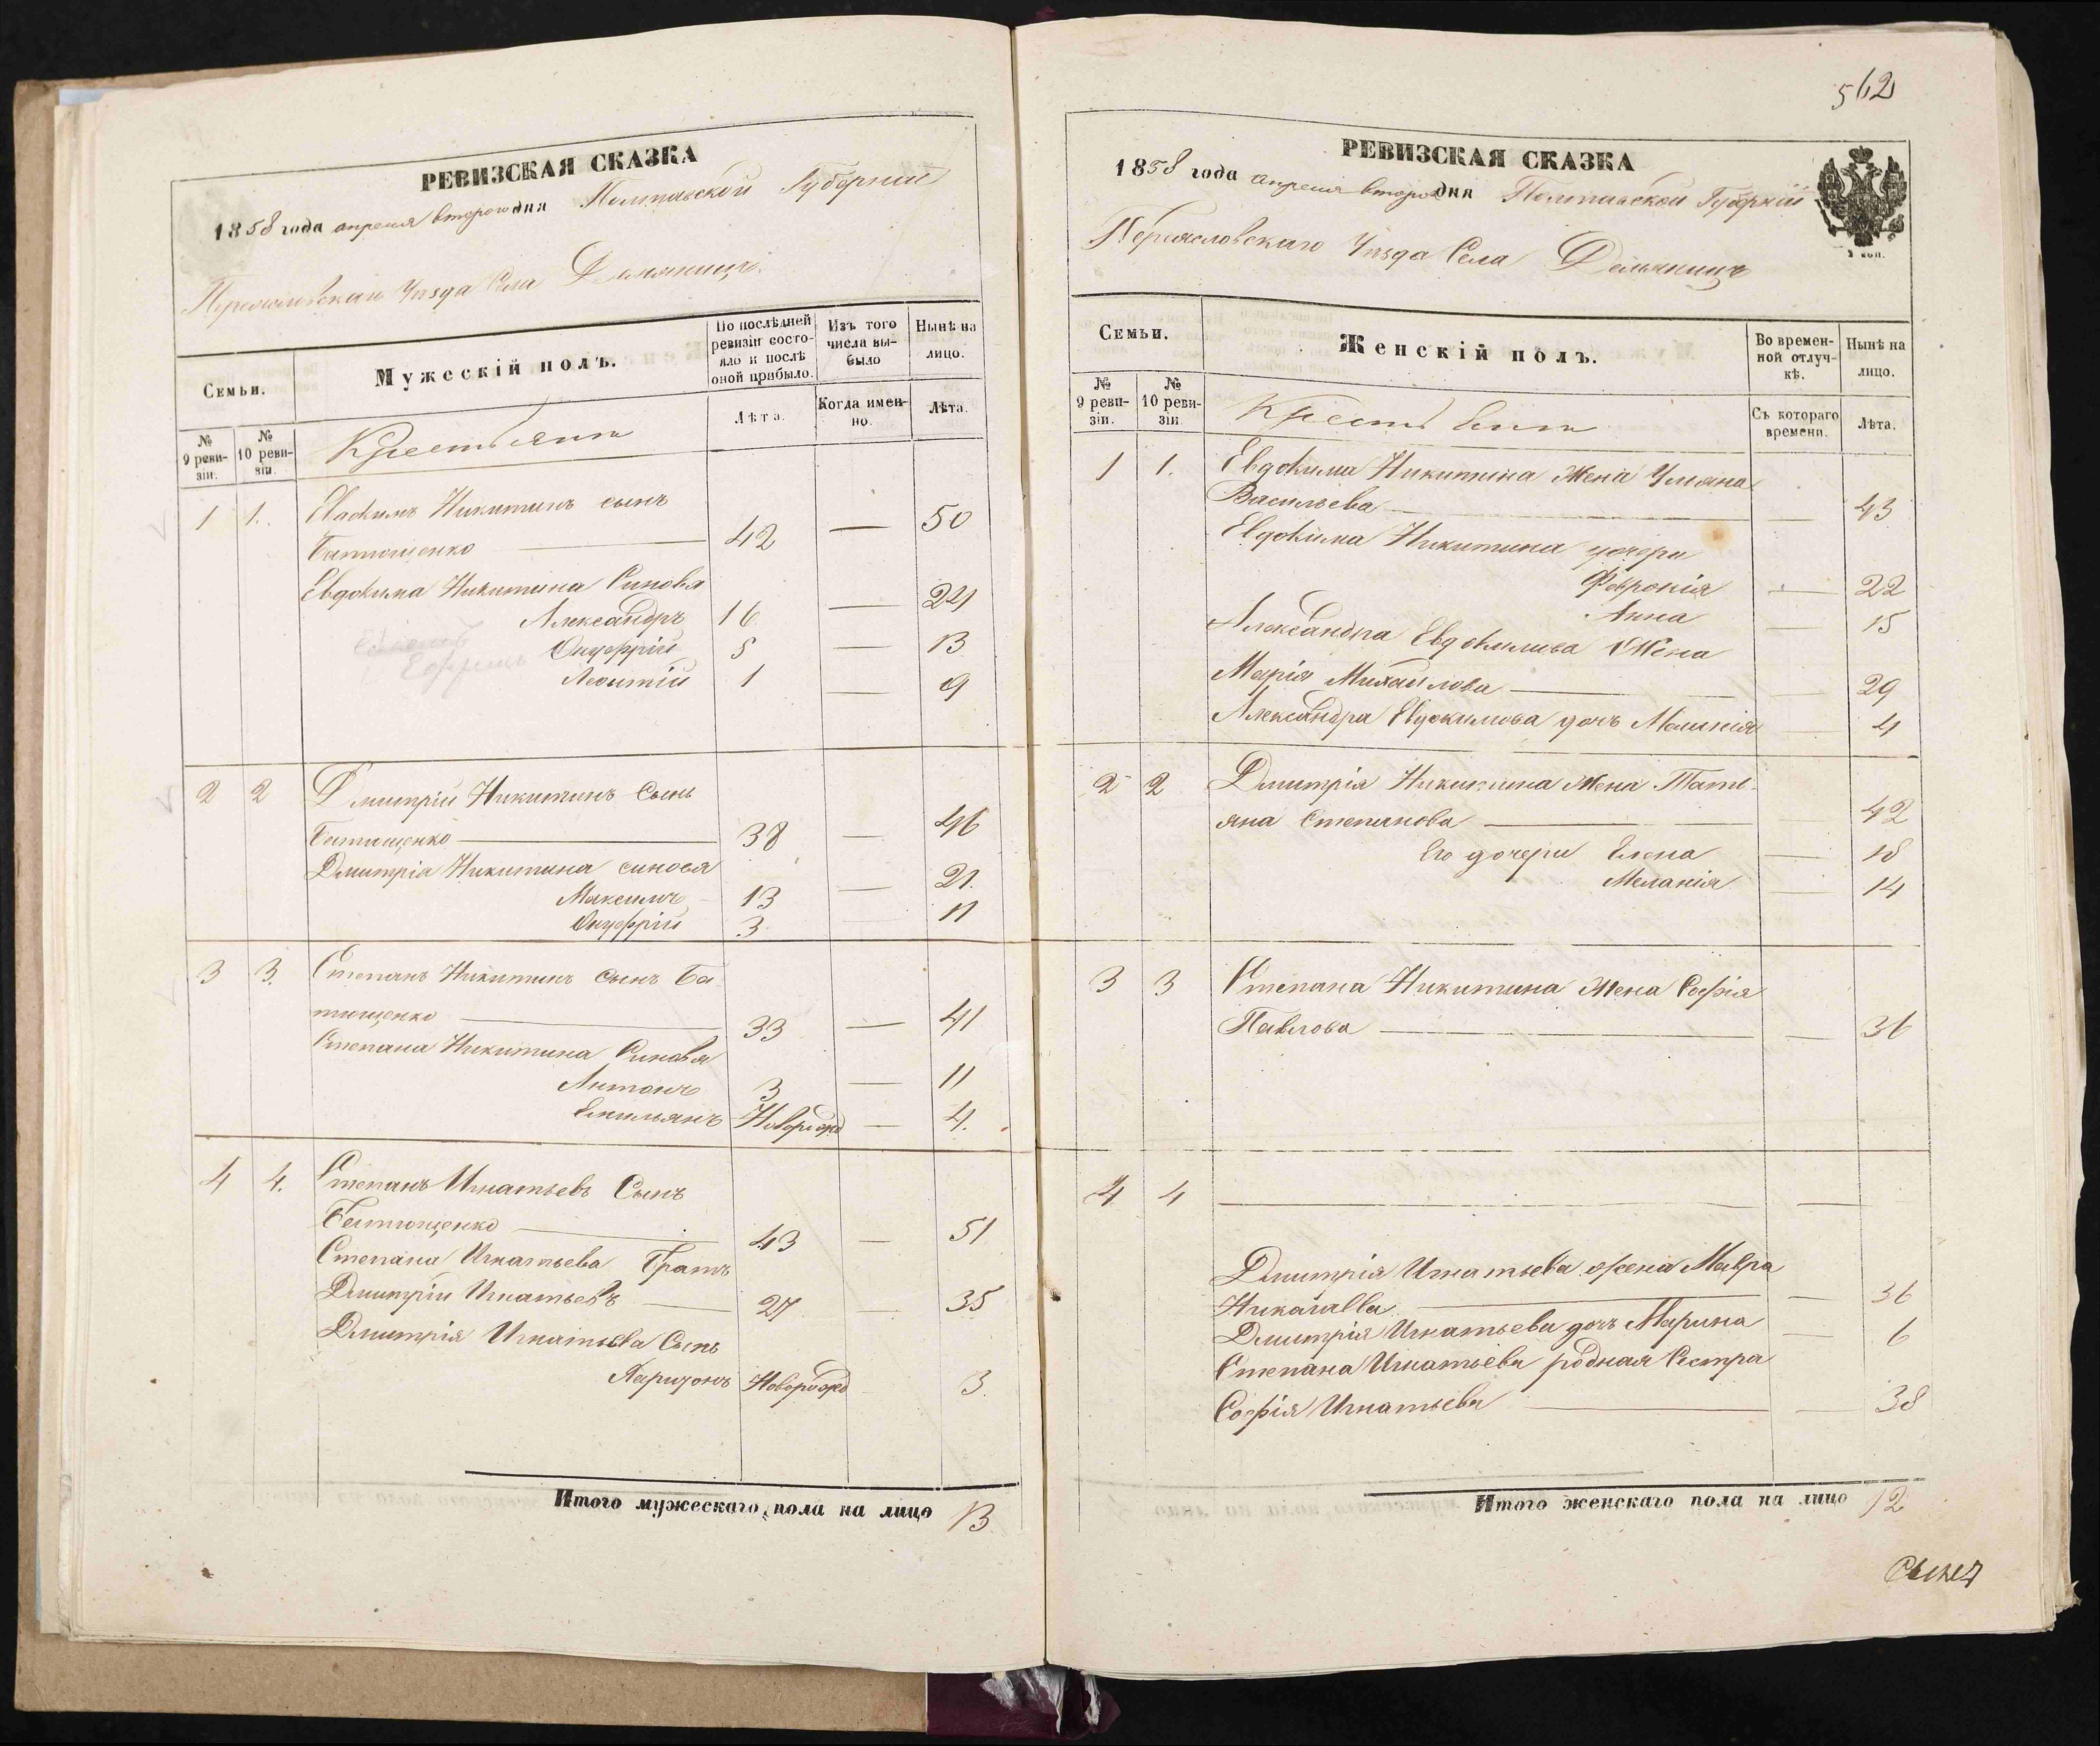 562
РЕВИЗСКАЯ СКАЗКА
1858 года апреля второго дня Полтавской Губерніи
Переяславскаго Уезда Села Демянецъ
Семьи.
Мужескій полъ.
По послѣдней ревизіи состояло и послѣ оной прибыло.
Изъ того числа выбыло
Нынѣ на лицо.
№ 9 ревизіи.
№ 10 ревизіи.
Крестьянъ
Лѣта.
Когда именно.
Лѣта.
1 1. Евдокимъ Никитинъ сынъ
Батющенко 42 — 50
Евдокима Никитина Синовья
Александръ 16 — 24
Онуфрій 5 — 13
Леонтій 1 — 9
2 2 Дмитрій Никитинъ Сынъ
Батющенко 38 — 46
Дмитрія Никитина синовя
Максимъ 13 — 21.
Онуфрій 3 11
3 3. Степанъ Никитинъ Сынъ Ба-
тющенко 33 — 41
Степана Никитина Синовья
Антонъ 3 — 11
Емильянъ Новорожд — 4.
4 4. Степанъ Игнатьевъ Сынъ
Батющенко 43 — 51
Степана Игнатьева Братъ
Дмитрій Игнатьевъ — 27 — 35
Дмитрія Игнатьева Сынъ
Новорожд 3.
Итого мужескаго пола на лицо 13
РЕВИЗСКАЯ СКАЗКА
1858 года апреля второго дня Полтавской Губерніи
Переясловскаго Уезда Села Демянецъ
Семьи.
Женскій полъ.
Во временной отлучкѣ.
Нынѣ на лицо.
№ 9 ревизіи.
№ 10 ревизіи
Съ котораго времени.
Лѣта.
1 1. Евдокима Никитина Жена Ульяна
Васильева — 43
Евдокима Никитина дочери
Февронія — 22
Анна — 15
Александра Евдокимова Жена
Марія Михайлова — 29
Александра Евдокимова дочь Меланія 4
2 2 Дмитрія Никитина Жена Тать-
яна Степанова — 42
Его дочери Елена — 18
Меланія — 14
3 3 Степана Никитина Жена Софія
Павлова — 36
4 4 — —
Дмитрія Игнатьева жена Мавра
— 36
Дмитрія Игнатьева дочь Марина — 6
Степана Игнатьева родная Сестра
Софія Игнатьева — 38
Итого женскаго пола на лицо 12